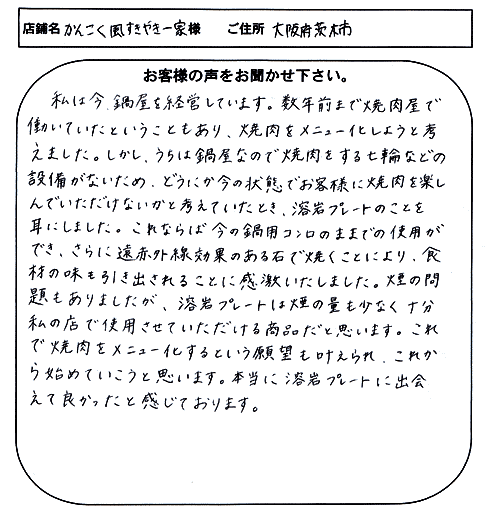 店舗名 かんこく風すきやき一家様 ご住所 大阪府茨木市
お客様の声をお聞かせ下さい。
私は今、鍋屋を経営しています。数年前まで焼肉屋で
働いていたということもあり、焼肉をメニュー化しようと考
えました。しかし、うちは鍋屋なので焼肉をする七輪などの
設備がないため、どうにか今の状態でお客様に焼肉を楽し
んでいただけないかと考えていたとき、溶岩プレートのことを
耳にしました。これならば今の鍋用コンロのままでの使用が
でき、さらに遠赤外線効果のある石で焼くことにより、食
材の味も引き出されることに感激いたしました。煙の問
題もありましたが、溶岩プレートは煙の量も少なく十分
私の店で使用させていただける商品だと思います。これ
で焼肉をメニュー化するという願望も叶えられ、これか
ら始めていこうと思います。本当に溶岩プレートに出会
えて良かったと感じております。